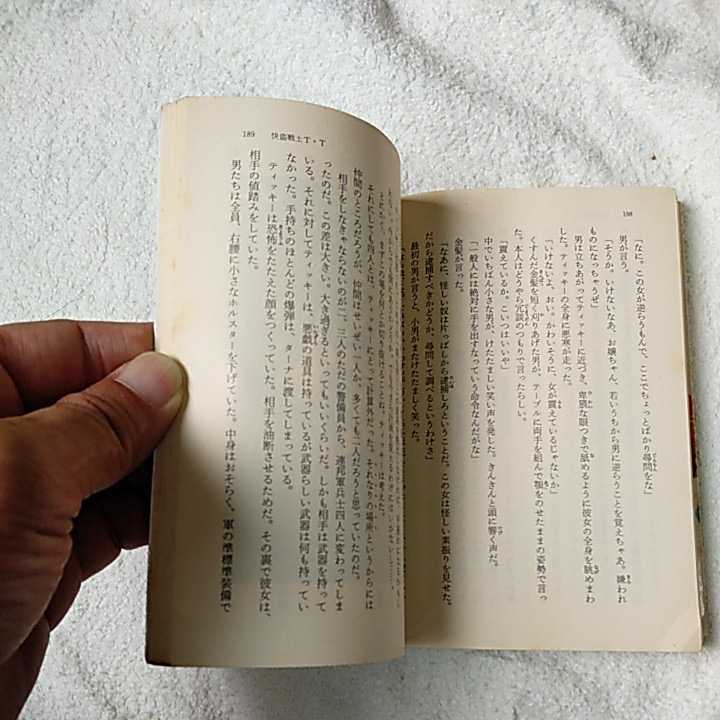 188
「なに。この女が逆らうもんで、ここでちょっとばかり尋問をな」
男が言う。
「そうか。いけないなあ、お嬢ちゃん、若いうちから男に逆らうことを覚えちゃあ。嫌われ
ものになっちゃうぜ」
男は立ちあがってティッキーに近づき、卑猥な眼つきで舐めるように彼女の全身を眺めまわ
した。ティッキーの全身に悪寒が走った。
「いけないよ、おい。かわいそうに、女が震えているじゃないか」
くすんだ金髪を短く刈りあげた男が、テーブルに両手を組んで顎をのせたままの姿勢で言っ
た。本人はどうやら冗談のつもりで言ったらしい。
「震えているか。こいつはいいや」
中でいちばん小さな男が、けたたましい笑い声を発した。きんきんと頭に響く声だ。
「一般人には絶対に手を出すなっていう命令なんだがな」
金髪が言った。
「なあに、怪しい奴は片っぱしから逮捕しろということだ。この女は怪しい素振りを見せた。
だから逮捕すべきかどうか、尋問して調べるというわけさ」
最初の男が言うと、小男がまたけたたましく笑った。
189 快盗戦士T・T
それにしても四人とは、ティッキーにとって計算外だった。それなりの場所というからには
仲間のところだろうが、仲間はせいぜい一人か、多くても二人だろうと思っていたのだ。
相手をしなきゃならないのが二、三人のただの警備員から、連邦軍兵士四人に変わってしま
ったのだ。この差は大きい。大き過ぎるといってもいいくらいだ。しかも相手は武器を持って
いる。それに対してティッキーは、悪戯の道具は持っているが武器らしい武器は何も持ってい
なかった。手持ちのほとんどの爆弾は、ターナに渡してしまっている。
ティッキーは恐怖をたたえた顔をつくっていた。相手を油断させるためだ。その裏で彼女は、
相手の値踏みをしていた。
男たちは全員、右腰に小さなホルスターを下げていた。中身はおそらく、軍の準標準装備で